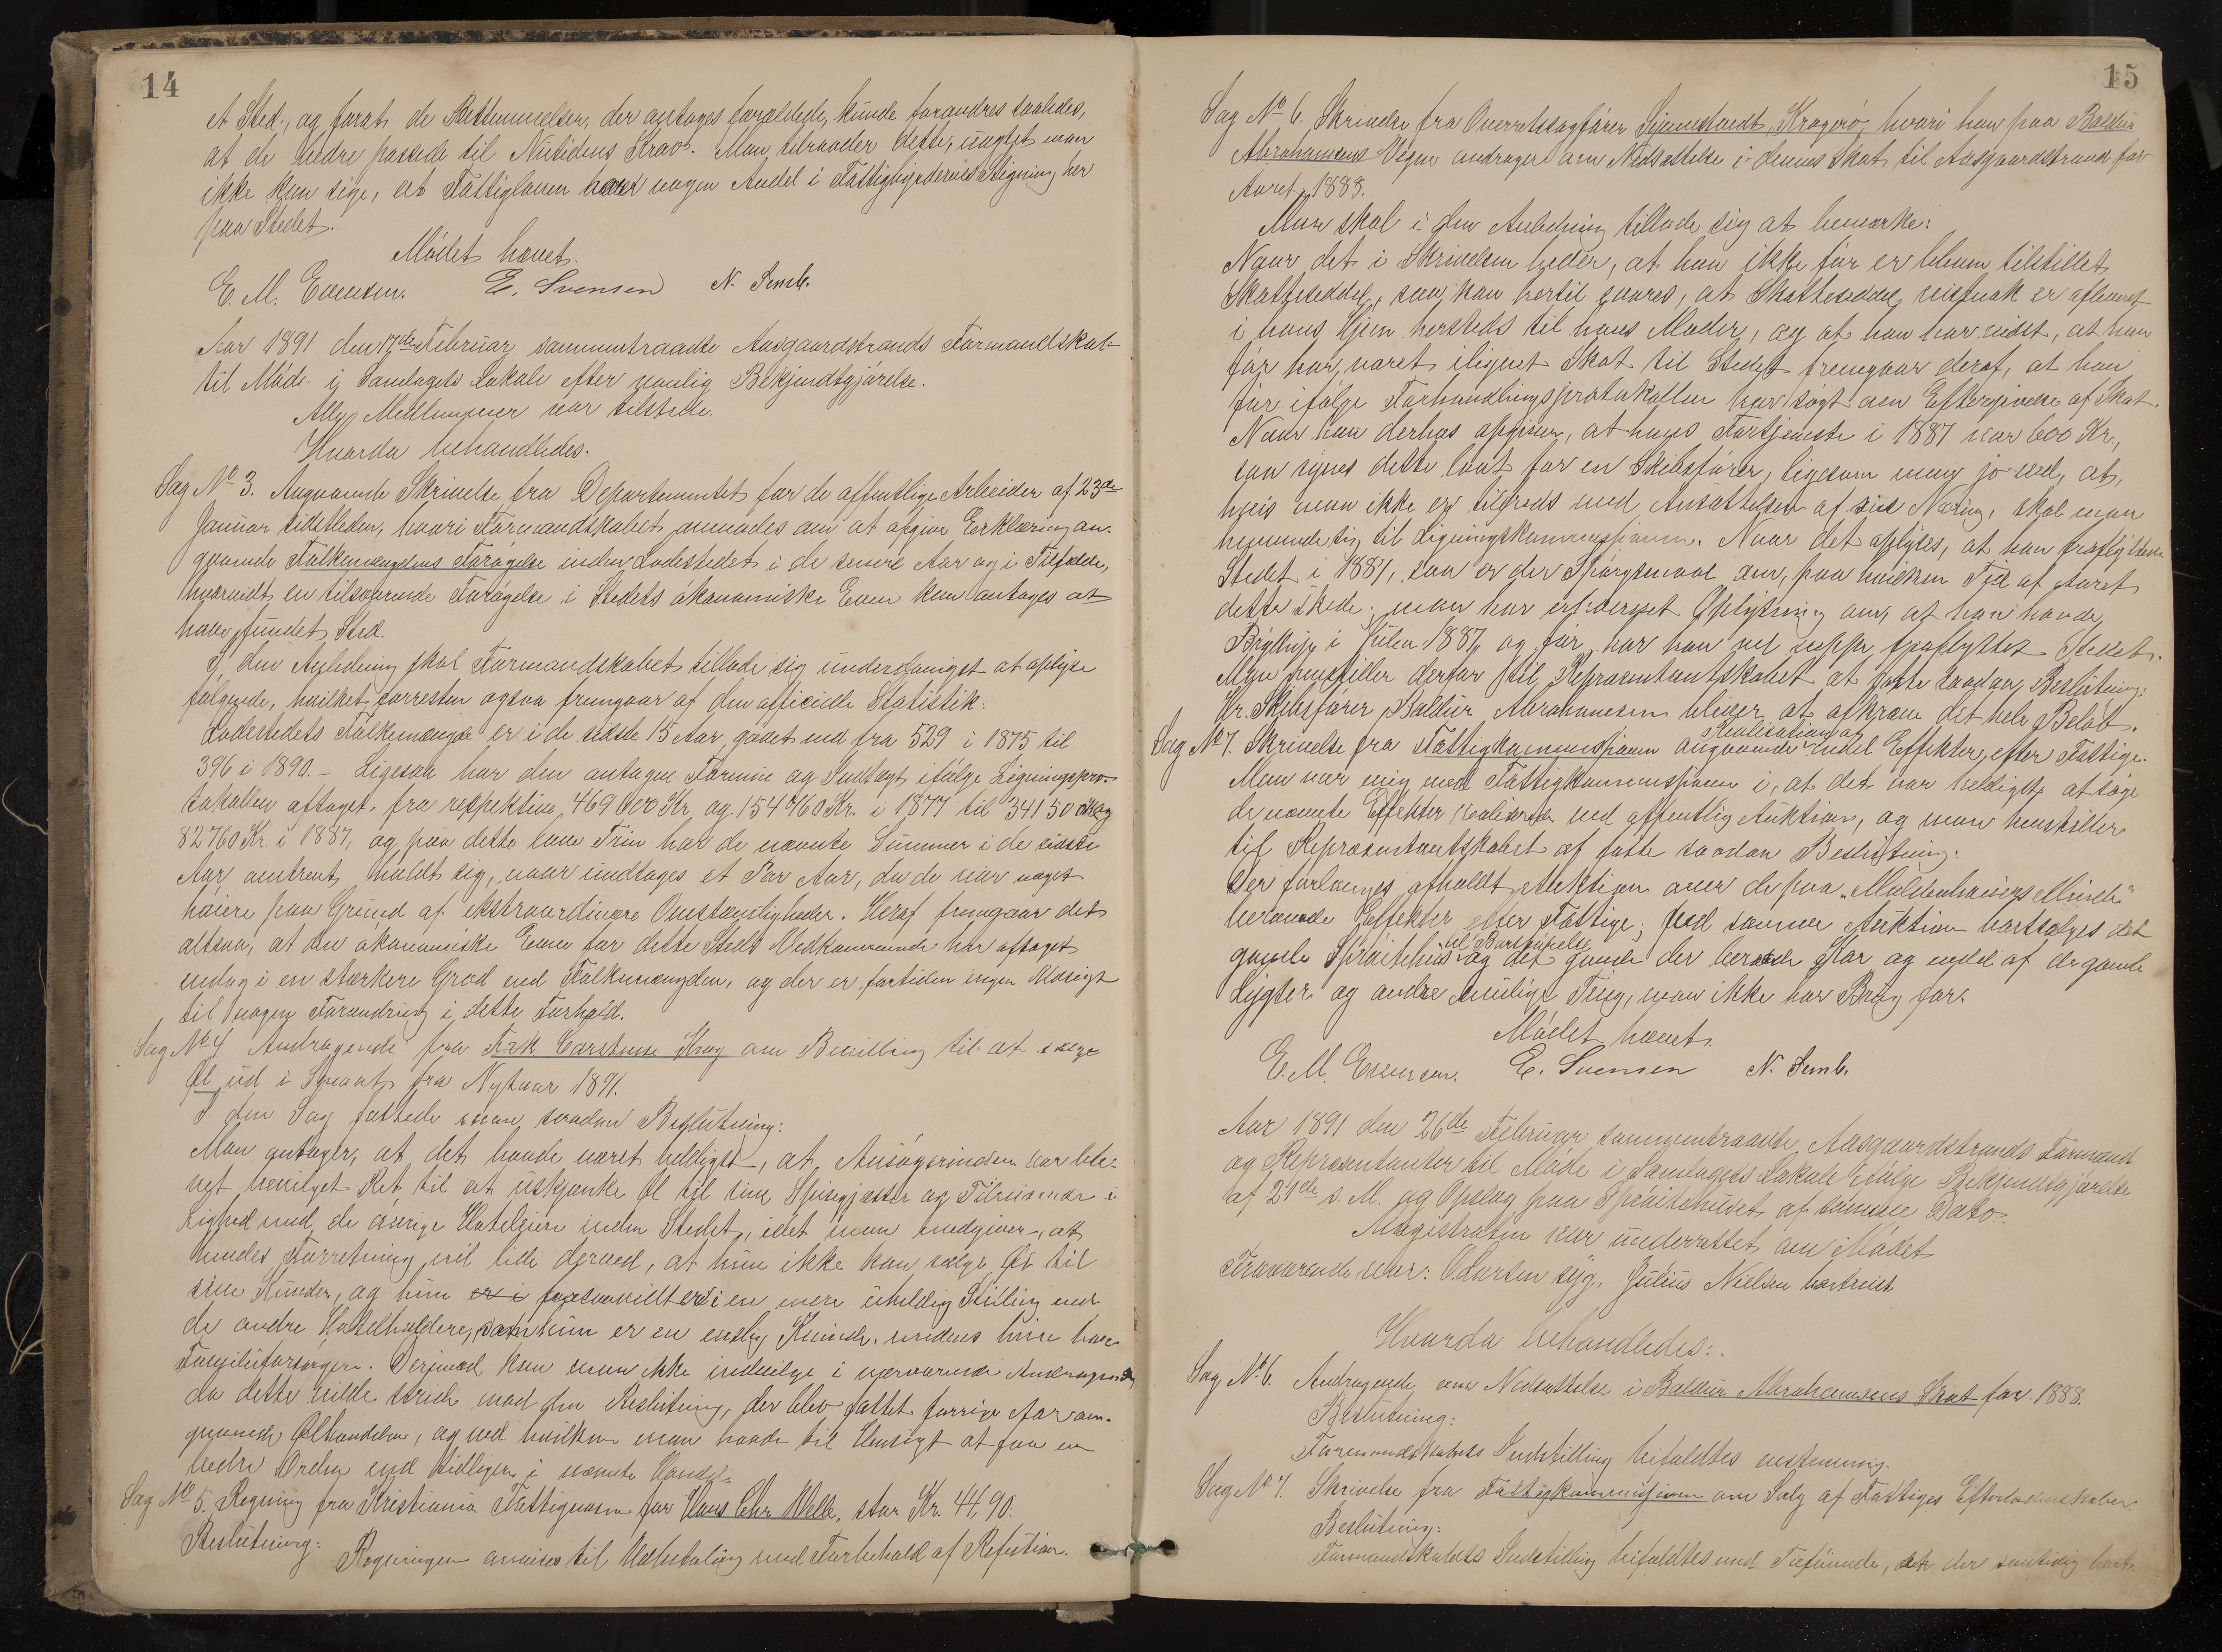 14
et Sted, og forat de Bestemmelser, der antages forældede, kunde forandres saaledes,
at de bedre passede til Nutidens Krav. Man tilraader dette, uagtet man
ikke kan sige, at Fattigloven har nogen Andel i Fattigbyrdernes Stigning her
paa Stedet.
Mödet hævet.
E. M. Evensen. E. Svensen N. Semb.
Aar 1891 den 17de Februar sammentraadte Aasgaardstrands Formandskab
til Möde i Samlagets Lokale efter vanlig Bekjendtgjörelse.
Alle Medlemmer var tilstede.
Hvorda behandledes:
Sag No 3. Angaaende Skrivelse fra Departementet for de offentlige Arbeider af 23de
Januar sidstleden, hvori Formandskabet anmodes om at afgive Erklæring an-
gaaende Folkemængdens Forögelse inden Ladestedet i de senere Aar og i Tilfælde,
hvorvidt en tilsvarende Forögelse i Stedets ökonomiske Evne kan antages at
have fundet Sted.
I den Anledning skal Formandskabet tillade sig underdanigst at oplyse
fölgende, hvilket forresten ogsaa fremgaar af den officielle Statistik:
Ladestedets Folkemængde er i de sidste 15 Aar gaaet ned fra 529 i 1875 til
396 i 1890. – Ligesaa har den antagne Formue og Indtægt ifölge Ligningspro-
tokollen aftaget fra respektive 469 000 Kr. og 154 760 Kr. i 1877 til 34150 og
82760 Kr. i 1887, og paa dette lave Trin har de nævnte Summer i de sidste
Aar omtrent holdt sig, naar undtages et Par Aar, da de var noget
höiere paa Grund af ekstraordinære Omstændigheder. Heraf fremgaar det
altsaa, at den ökonomiske Evne for dette Steds Vedkommende har aftaget
endog i en stærkere Grad end Folkemængden, og der er fortiden ingen Udsigt
til nogen Forandring i dette Forhold.
Sag No 4 Andragende fra Frk Carstense Krog om Bevilling til at sælge
Öl ud i Smaat fra Nytaar 1891.
I den Sag fattede man saadan Beslutning:
Man antager, at det havde været heldigst, at Ansögerinden var ble-
vet bevilget Ret til at udskjænke Öl til sine Spisegjæster og Tilreisende i
Lighed med de övrige Hoteleiere inden Stedet, idet man medgiver, at
hendes Forretning vil lide derved, at hun ikke kan sælge Öl til
sine Kunder, og hun er i forsaavidt er i en mere uheldig Stilling end
de andre Hotelholdere, som hun er en enslig Kvinde, medens hine har
Familieforsörgere. Derimod kan man ikke indvilge i nærværende Andragende
da dette vilde stride mod den Beslutning, der blev fattet forrige Aar an-
gaaende Ölhandelen, og ved hvilken man havde til Hensigt at faa en
bedre Orden end tidligere i nævnte Handel.
Sag No 5. Regning fra Kristiania Fattigvæsen for Hans Chr. Welle, stor Kr. 44,90.
Beslutning:
Regningen anvises til Udbetaling med Forbehold af Refusion.
15
Sag No 6. Skrivelse fra Overretssagförer Kragerö, hvori han paa Baldur
Abrahamsens Vegne andrager om Nedsættelse i dennes Skat til Aasgaardstrand for
Aaret 1888.
Man skal i den Anledning tillade sig at bemærke:
Naar det i Skrivelsen heder, at han ikke för er bleven tilstillet
Skatteseddel, saa kan hertil svares, at Skatteseddel er afleveret
i hans Hjem hersteds til hans Moder, og at han har vidst, at han
för har været ilignet Skat til Stedet fremgaar deraf, at han
för ifölge Forhandlingsprotokollen har sögt om Eftergivelse af Skat.
Naar han derhos opgiver, at hans Fortjeneste i 1887 var 600 Kr.,
saa synes dette lavt for en Skibsförer, ligesom man jo ved, at,
hvis man ikke er tilfreds med Ansættelsen af sin Næring, skal man
henvende sig til Ligningskommissionen. Naar det oplyses, at han fraflyttede
Stedet i 1887, saa er der Spörgsmaal om, paa hvilken Tid af Aaret
dette skede; man har erhvervet Oplysning om, at han havde
Bryllup i Julen 1887, og för har han vel neppe fraflyttet Stedet.
Man henstiller derfor til Repræsentantskabet at fatte saadan Beslutning:
Hr. Skibsförer Baldur Abrahamsen bliver at afkræve det hele Belöb.
Sag No 7. Skrivelse fra Fattigkommissionen angaaende Realisation af endel Effekter efter Fattige.
Man var enig med Fattigkommissionen i, at det var heldigst at söge
de nævnte Effekter realiserede ved offentlig Auktion, og man henstiller
til Repræsentantskabet at fatte saadan Beslutning:
Der forlanges afholdt Auktion over de paa „Moldenhauers Minde"
beroende Effekter efter Fattige; ved samme Auktion bortsælges det
gamle Spröitehus til Bortflytelse og det gamle der beroende Kar og endel af de gamle
Lygter og andre mulige Ting, man ikke har Brug for.
Mödet hævet.
E. M. Evensen. E. Svensen N. Semb.
Aar 1891 den 26de Februar sammentraadte Aasgaardstrands Formænd
og Repræsentanter til Möde i Samlagets Lokale ifölge Bekjendtgjörelse
af 21de s. M. og Opslag paa Spröitehuset af samme Dato.
Magistraten var underrettet om Mödet
Fraværende var: O. Larsen syg, Julius Nielsen bortreist
Hvorda behandledes:
Sag No 6. Andragende om Nedsættelse i Baldur Abrahamsens Skat for 1888.
Beslutning:
Formandskabets Indstilling bifaldtes enstemmig.
Sag No 7. Skrivelse fra Fattigkommissionen om Salg af Fattiges Efterladenskaber.
Beslutning:
Formandskabets Indstilling bifaldtes med Tilföiende, at der samtidig bort-